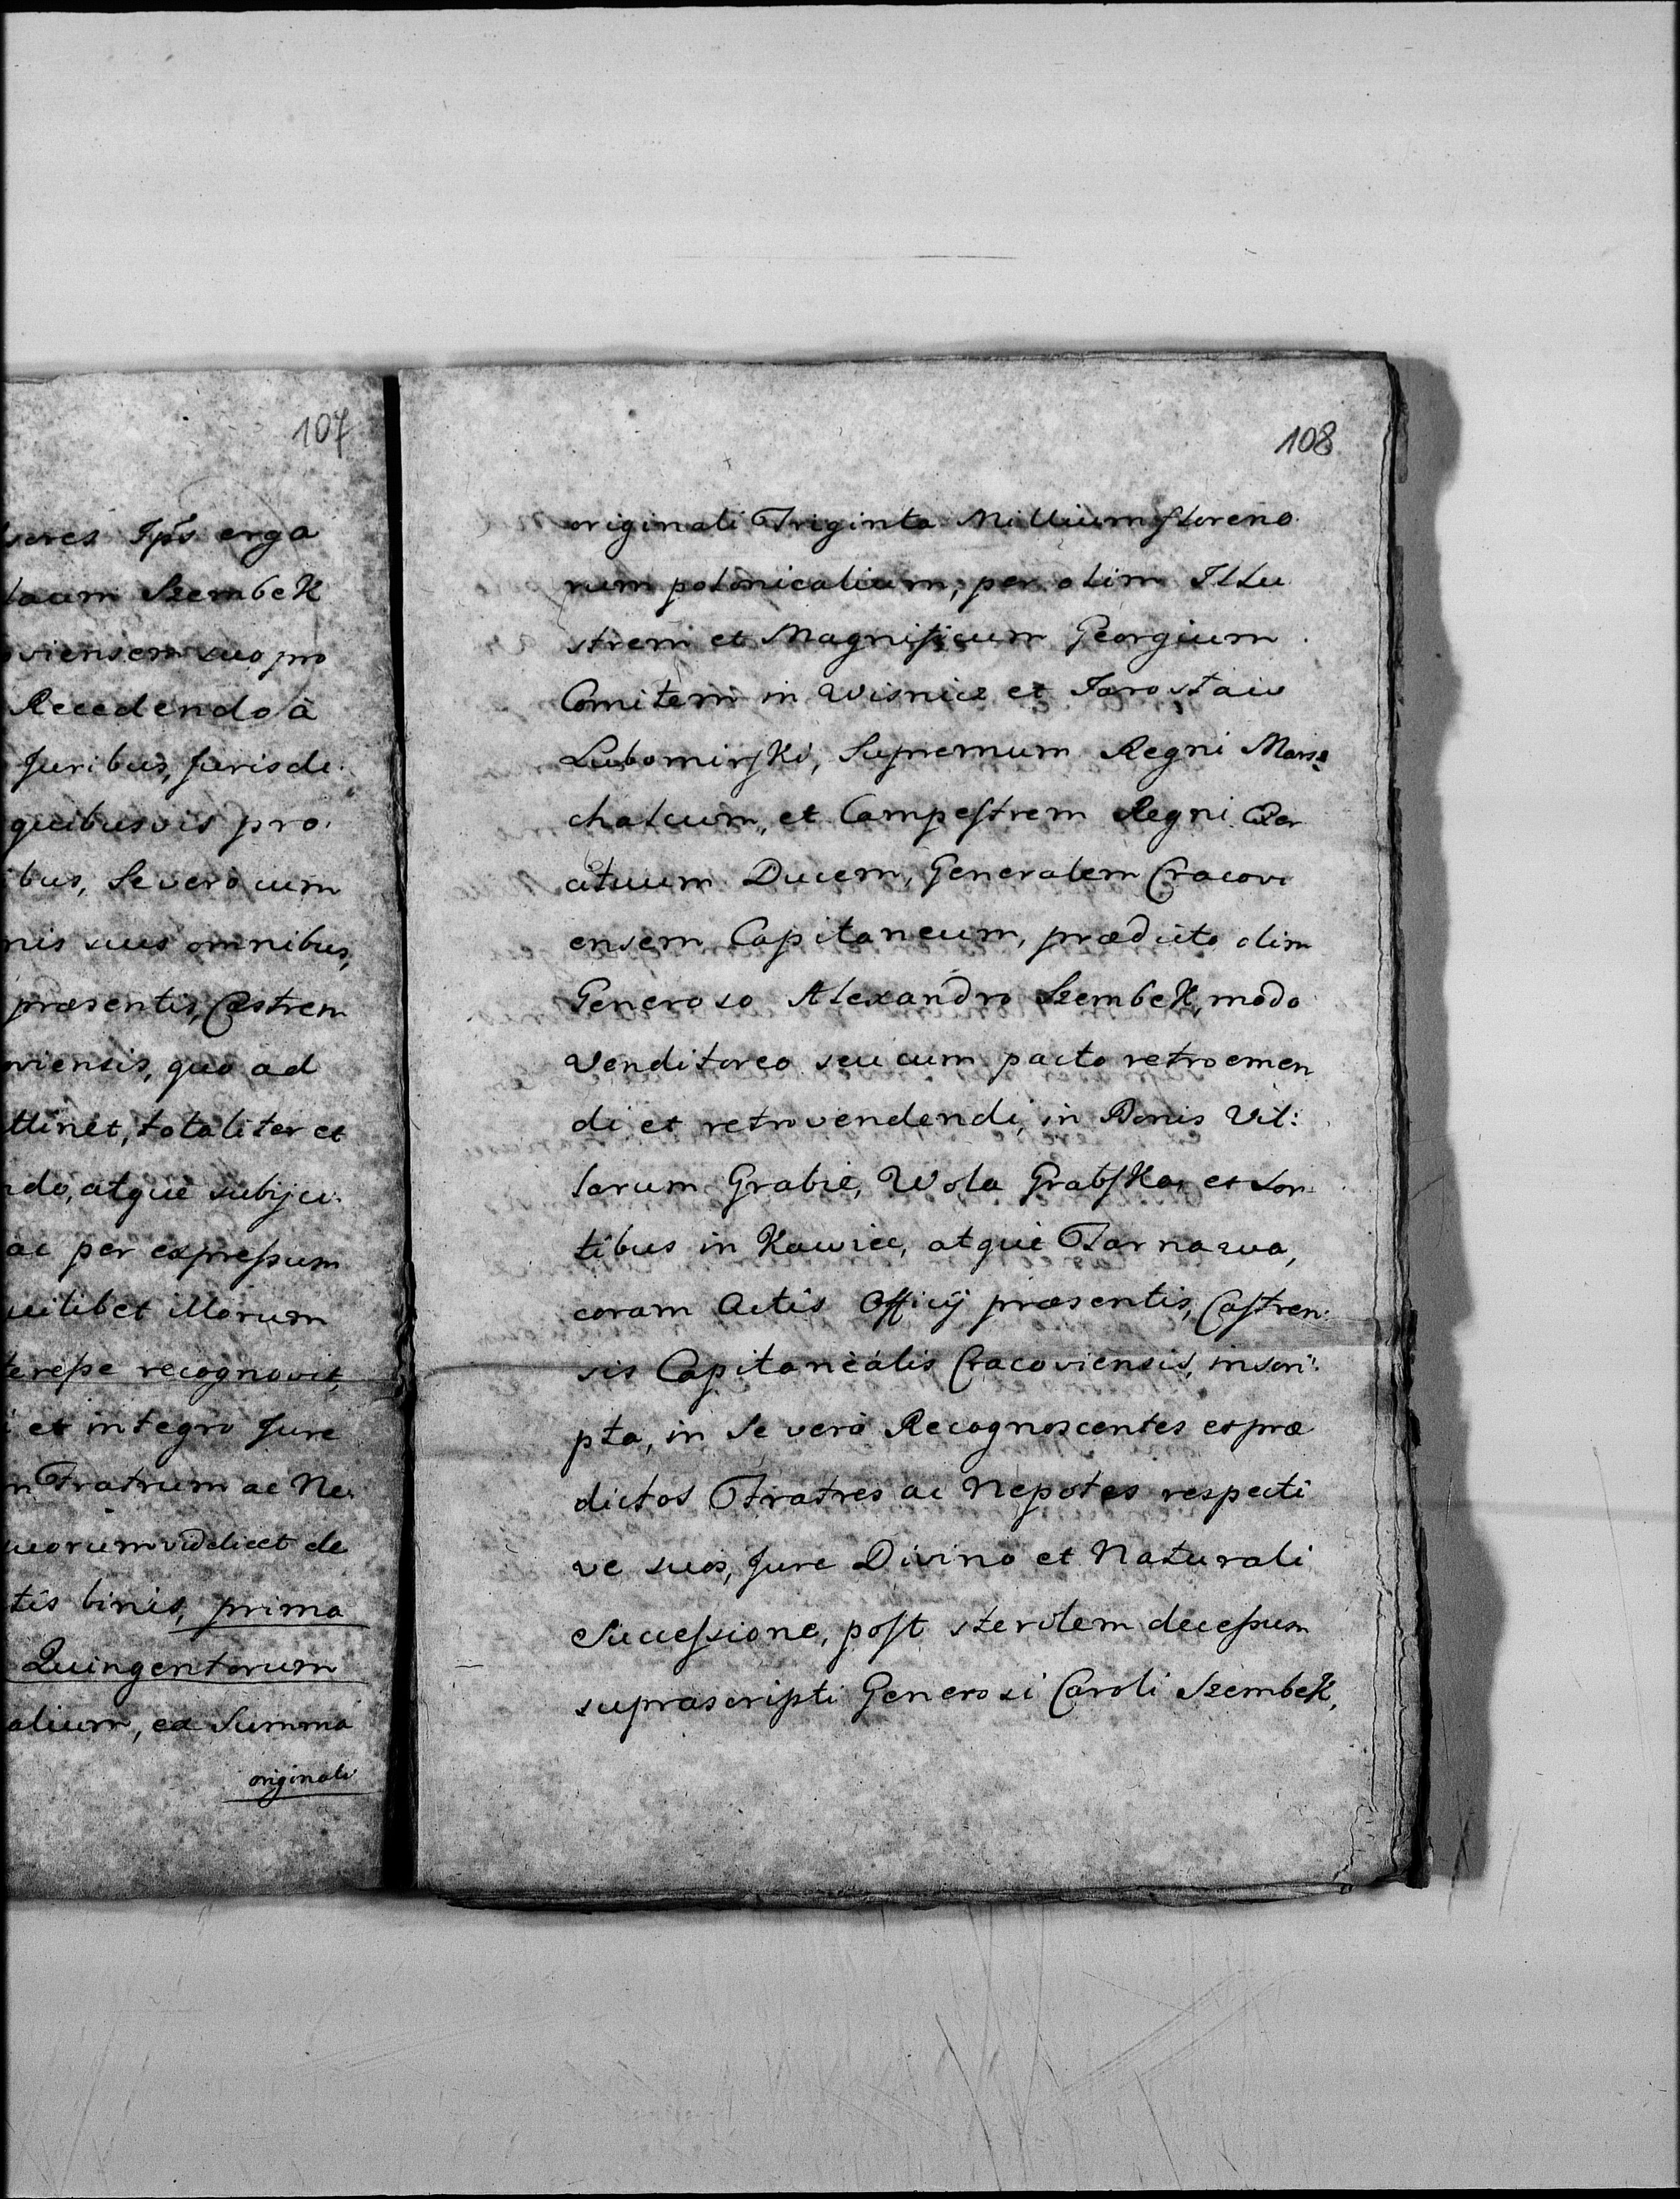 107
Ips erga
Szembek
viensem suo pro
Recedendo à
Juribus, Jurisdi
quibusvis pro.
bus, Se verò cum
nis suis omnibus,
præsentis, Castren
viensis, quo ad
ttinet, totaliter et
ndo, atque subiju.
ac per expressum
uilibet illorum
teresse recognovit,
et integro Jure
n Fratrum ac Ne.
uorum videlicet de
tis binis, prima
Quingentorum
alium, ex Summa
originali
108
originali Triginta Millium floreno
rum polonicalium, per olim Illu
strem et Magnificum Georgium
Comitem in Wisnicz et Jarosław
Lubomirski, Supremum Regni Mars
chalcum, et Campestrem Regni Exer
cituum Ducem, Generalem Cracovi
ensem Capitaneum, prædicto olim
Generoso Alexandro Szembek, modo
Venditoreo seu cum pacto retroemen
di et retrovendendi, in Bonis Vil:
larum Grabie, Wola Grabska, et sor
tibus in Kawice, atque Tarnawa,
coram Actis Officij præsentis, Castren:
sis Capitanealis Cracoviensis, inscri:
pta, in Se verò Recognoscentes et præ
dictos Fratres ac Nepotes respecti
ve suos, Jure Divino et Naturali
Successione, post sterilem decessum
suprascripti Generosi Caroli Szembek,